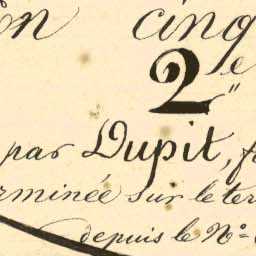 on cinq
2e
par Dupit, f
rminée sur le ter
depuis le No